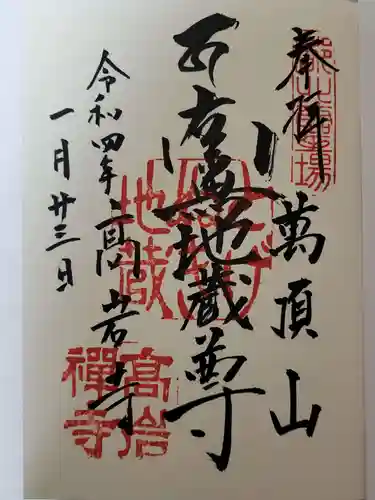 奉拝
萬頂山
地蔵尊
高岩寺
令和四年
一月廿三日
地蔵
高岩
禪寺